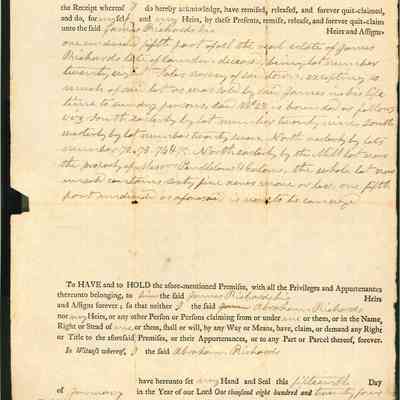 the Receipt whereof I do hereby acknowledge, have remised, released, and forever quit-claimed,
and do, for myself and my Heirs, by these Presents, remise, release, and forever quit-claim
unto the said James Richards his Heirs and Assigns
one undivided fifth part of all the real estate of James
Richards late of deceas. being lot number
twenty eight excepting so
much of said lot as was sold by said James in his life
time to sundry persons, said No 28 is bounded as follows
viz South easterly by lot number twenty nine South
westerly by lot number twenty seven North westerly by lots
number 72. 73. 74 & 75. North easterly by the Mill lot now
the property of & others, the whole lot now
contains sixty five acres more or less, one fifth
part undivided as aforesaid is now to be conveyed
To HAVE and to HOLD the afore-mentioned Premises, with all the Privileges and Appurtenances
thereunto belonging, to him the said James Richards his Heirs
and Assigns forever; so that neither I the said Abraham Richards
nor my Heirs, or any other Person or Persons claiming from or under me or them, or in the Name,
Right or Stead of me or them, shall or will, by any Way or Means, have, claim, or demand any Right
or Title to the aforesaid Premises, or their Appurtenances, or to any Part or Parcel thereof, forever.
In Witness whereof, I the said Abraham Richards
have hereunto set my Hand and Seal this fifteenth Day
of January in the Year of our Lord One thousand eight hundred and twenty four